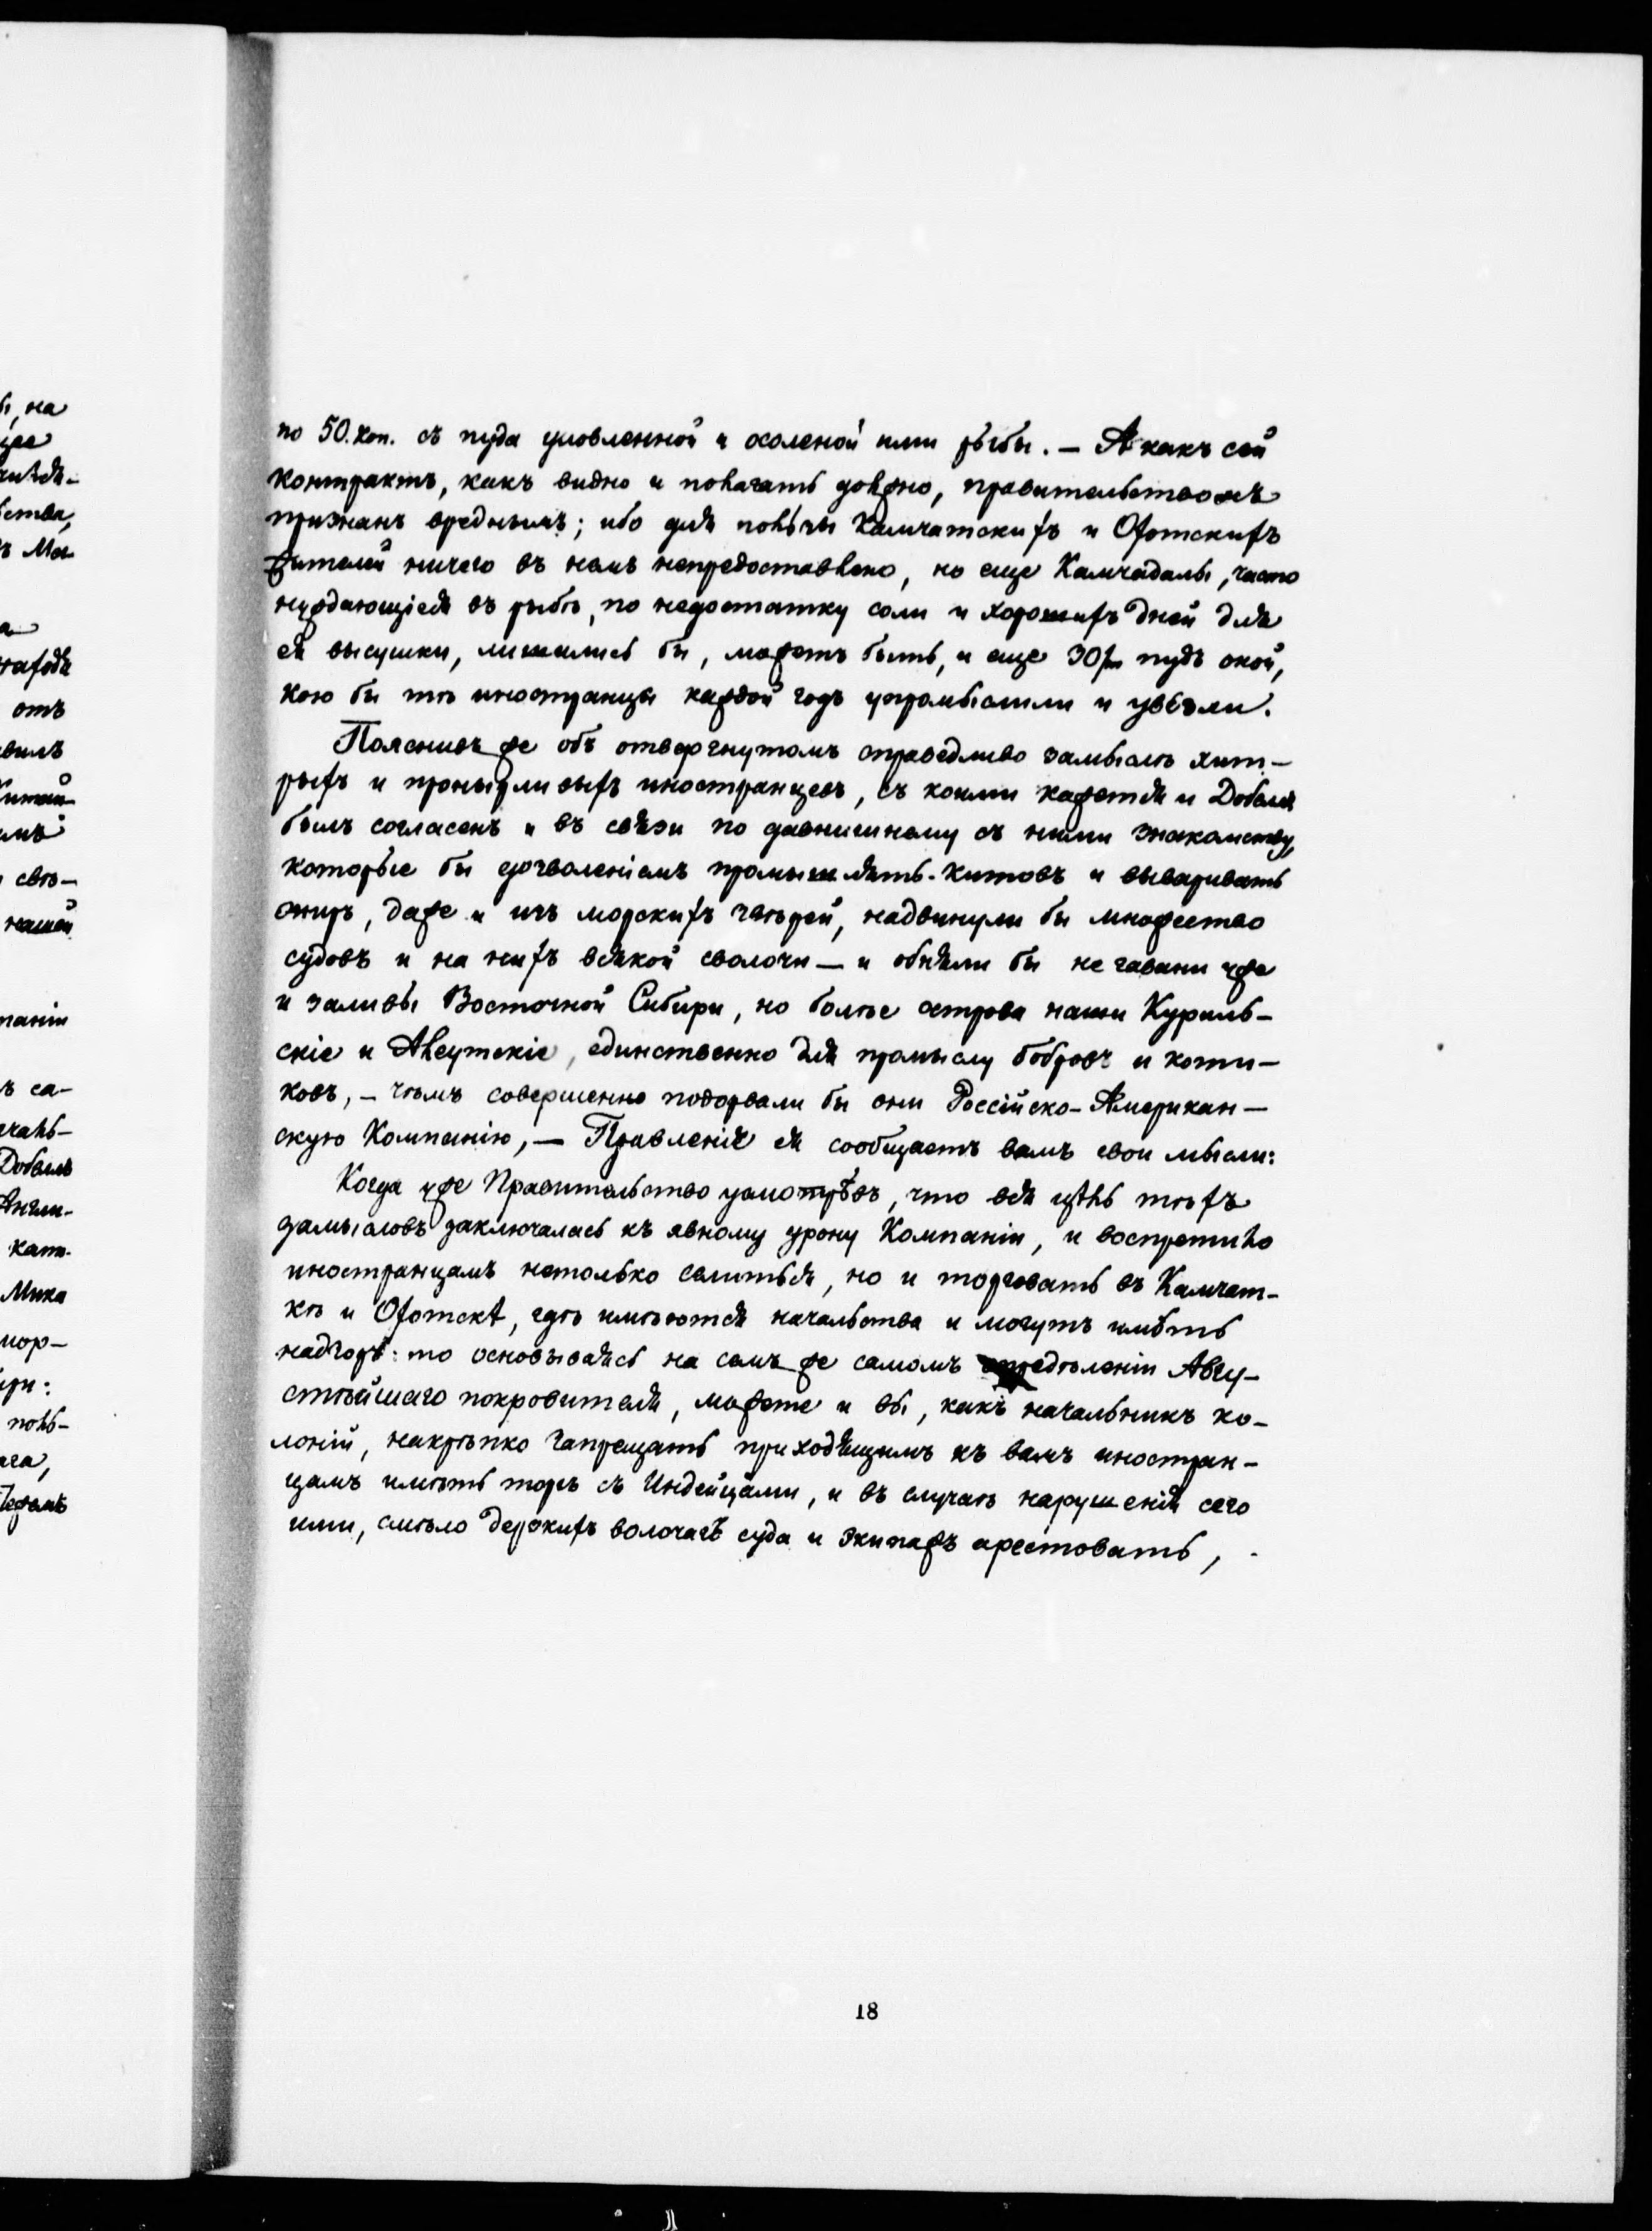 по 50. коп. съ пуда уловленной и осоленой ими рыбы. — А какъ сей
контрактъ, какъ видно и полагать должно, правительствомъ
признанъ вреднымъ; ибо для пользы Камчатскихъ и Охотскихъ
жителей ничего въ немъ непредоставлено, но еще Камчадалы, часто
нуждающіеся въ рыбѣ, по недостатку соли и хорошихъ дней для
ея высушки, лишились бы, можетъ быть, и еще 30/m пудъ оной,
кою бы тѣ иностранцы каждой годъ упромыслили и увезли.
Пояснивъ же объ отвергнутомъ справедливо замыслѣ хит-
рыхъ и пронырливыхъ иностранцевъ, съ коими кажется и Добель
былъ согласенъ и въ связи по давнишнему съ ними знакомству,
которые бы дозволеніемъ промышлять китовъ и вываривать
жиръ, даже и изъ морскихъ звѣрей, надвинули бы множество
судовъ и на нихъ всякой сволочи — и обняли бы не гавани уже
и заливы Восточной Сибири, но болѣе острова наши Куриль-
скіе и Алеутскіе, единственно для промыслу бобровъ и коти-
ковъ, — чѣмъ совершенно подорвали бы они Россійско-Американ-
скую Компанію, — Правленіе ея сообщаетъ вамъ свои мысли:
Когда уже Правительство усмотрѣвъ, что вся цѣль тѣхъ
замысловъ заключалась къ явному урону Компаніи, и воспретило
иностранцамъ нетолько селиться, но и торговать въ Камчат-
кѣ и Охотскѣ, гдѣ имѣются начальства и могутъ имѣть
надзоръ: то основываясь на семъ же самомъ опредѣленіи Авгу-
стѣйшаго покровителя, можете и вы, какъ начальникъ ко-
лоній, накрѣпко запрещать приходящимъ къ вамъ иностран-
цамъ имѣть торгъ съ Индейцами, и въ случаѣ нарушенія сего
ими, смѣло держихъ волочагъ суда и экипажъ арестовать,
18